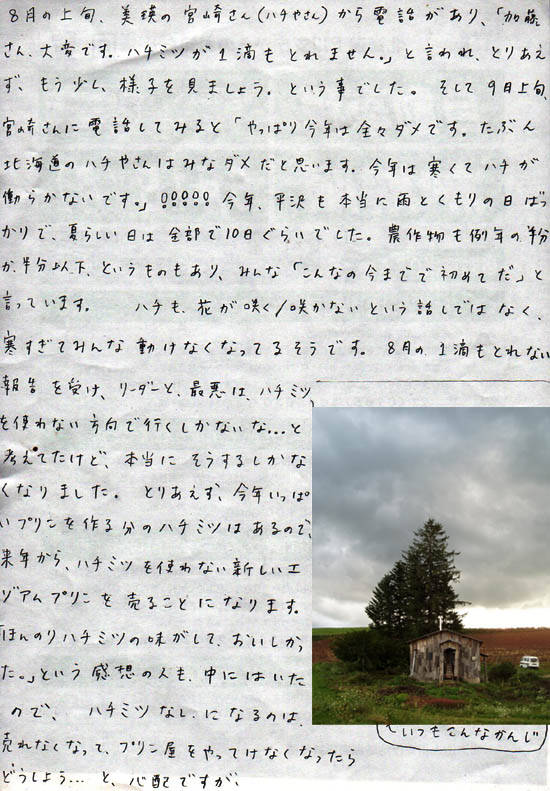 8月の上旬、美瑛の宮崎さん(ハチやさん)から電話があり、「加藤
さん、大変です。ハチミツが1滴もとれません。」と言われ、とりあえ
ず、もう少し、様子を見ましょう。という事でした。そして9月上旬、
宮崎さんに電話してみると「やっぱり今年は全々ダメです。たぶん
北海道のハチやさんはみなダメだと思います。今年は寒くてハチが
働らかないです。」!!!!! 今年、平沢も本当に雨とくもりの日ばっ
かりで、夏らしい日は全部で10日ぐらいでした。農作物も例年の半分
か、半分以下、というものもあり、みんな「こんなの今までで初めてだ」と
言っています。 ハチも、花が咲く/咲かないという話しではなく、
寒すぎてみんな動けなくなってるそうです。8月の1滴もとれない
報告を受け、リーダーと、最悪は、ハチミツ
を使わない方向で行くしかないな…と
考えてたけど、本当にそうするしかな
くなりました。とりあえず、今年いっぱ
いプリンを作る分のハチミツはあるので、
来年から、ハチミツを使わない新しいエ
ゾアムプリンを売ることになります。
「ほんのりハチミツの味がして、おいしかっ
た。」という感想の人も、中にはいた
ので、 ハチミツなしになるのは、
売れなくなって、プリン屋をやってけなくなったら
どうしよう…と、心配ですが、
いつもこんなかんじ